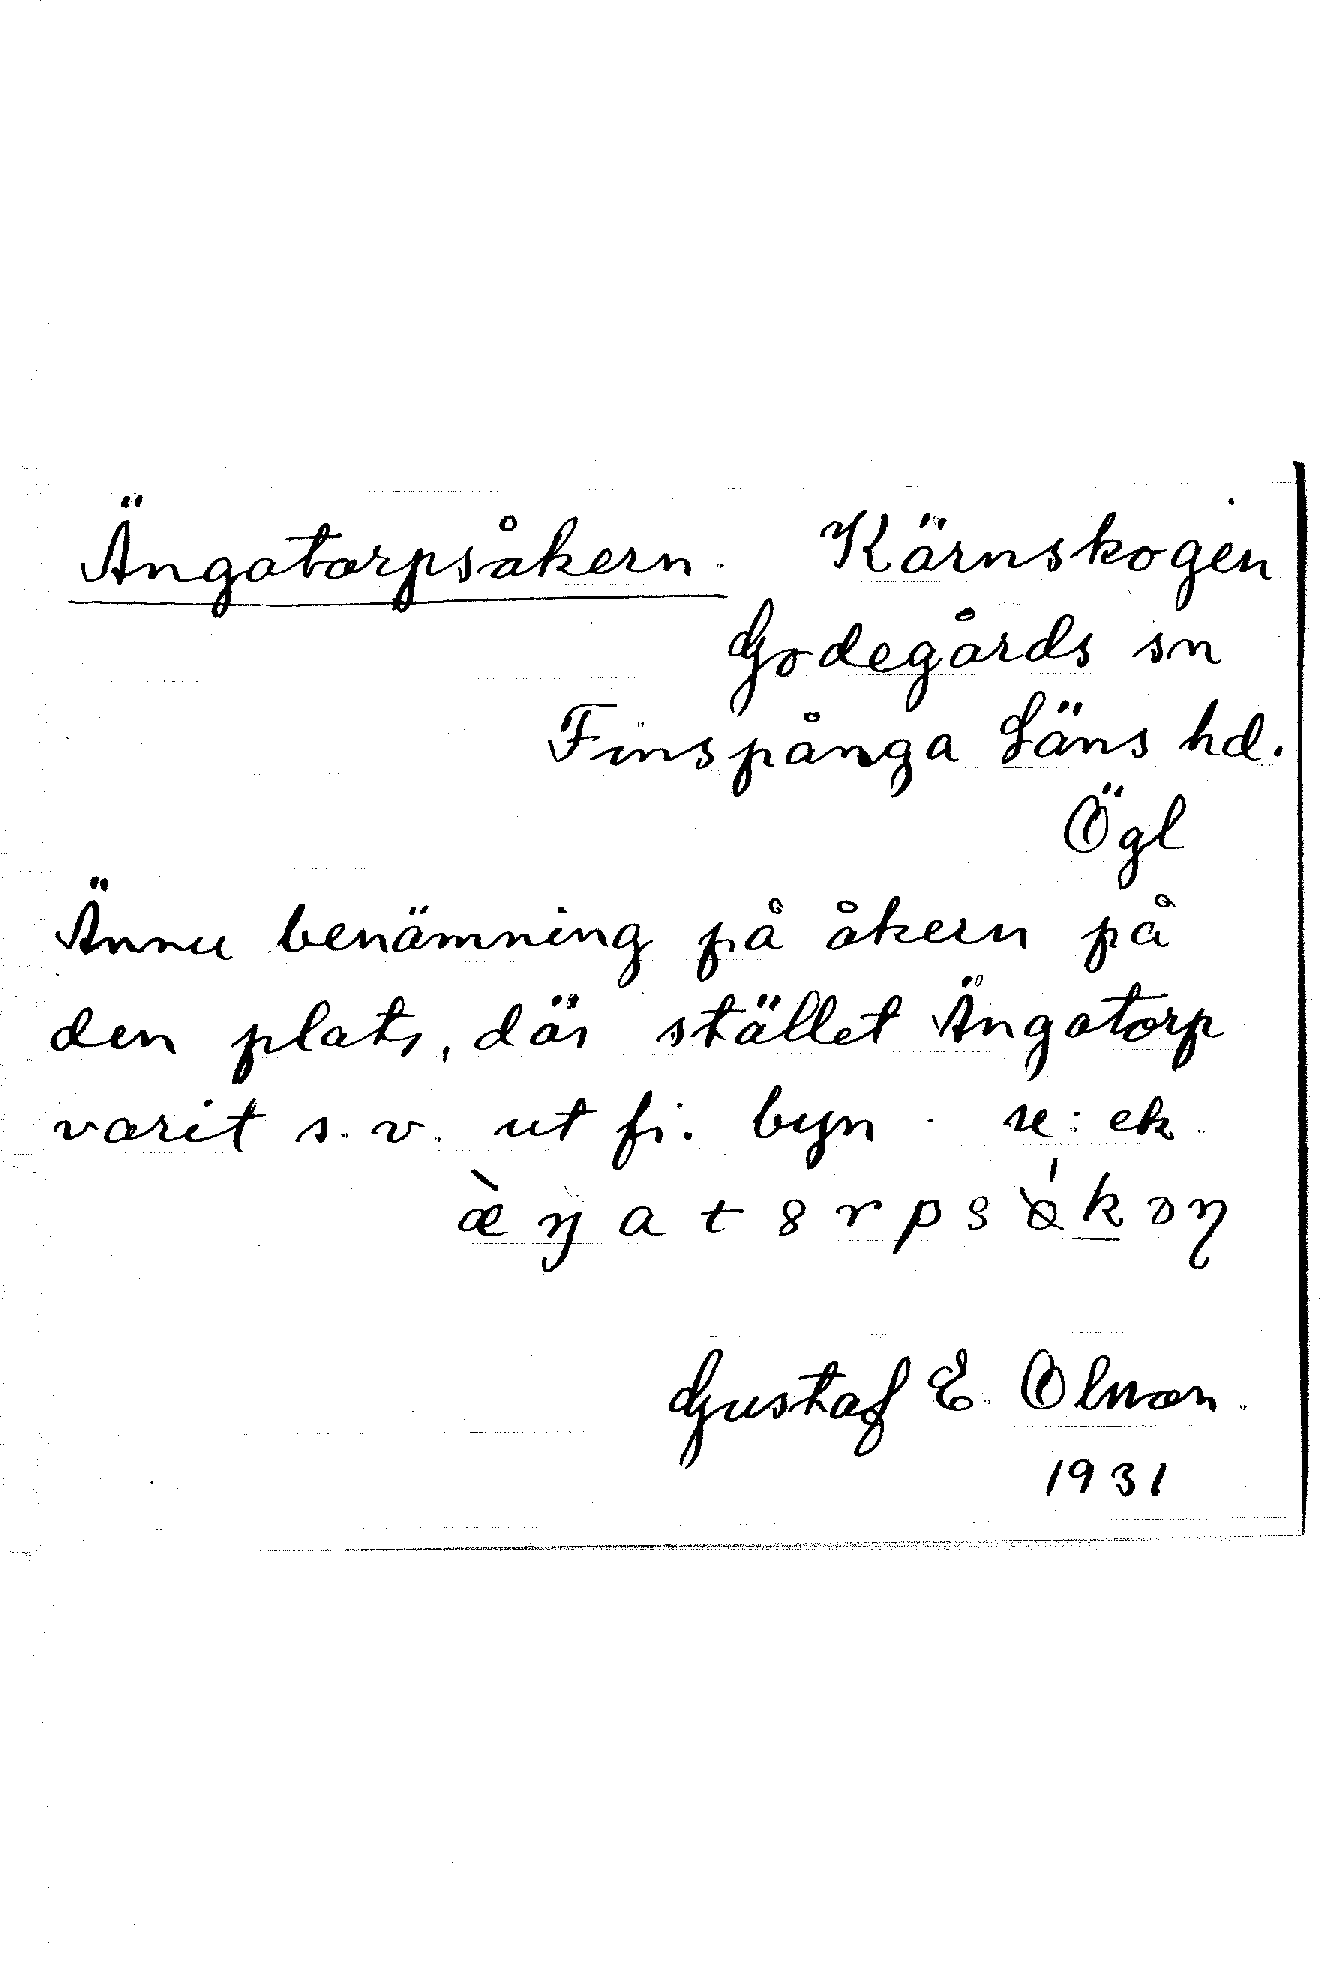 Ängatorpsåkern. Kärnskogen
Godegårds sn
Finspånga Läns hd.
Ögl
Ännu benämning på åkern på
den plats, där stället Ängatorp
varit s.v. ut fr. byn. se: ek
Gustaf E. Olsson.
1931